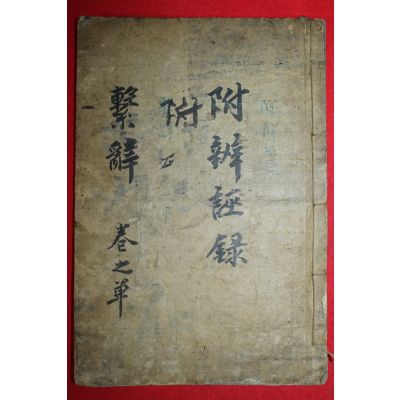 附辨誣録
附
繫辭 卷之单